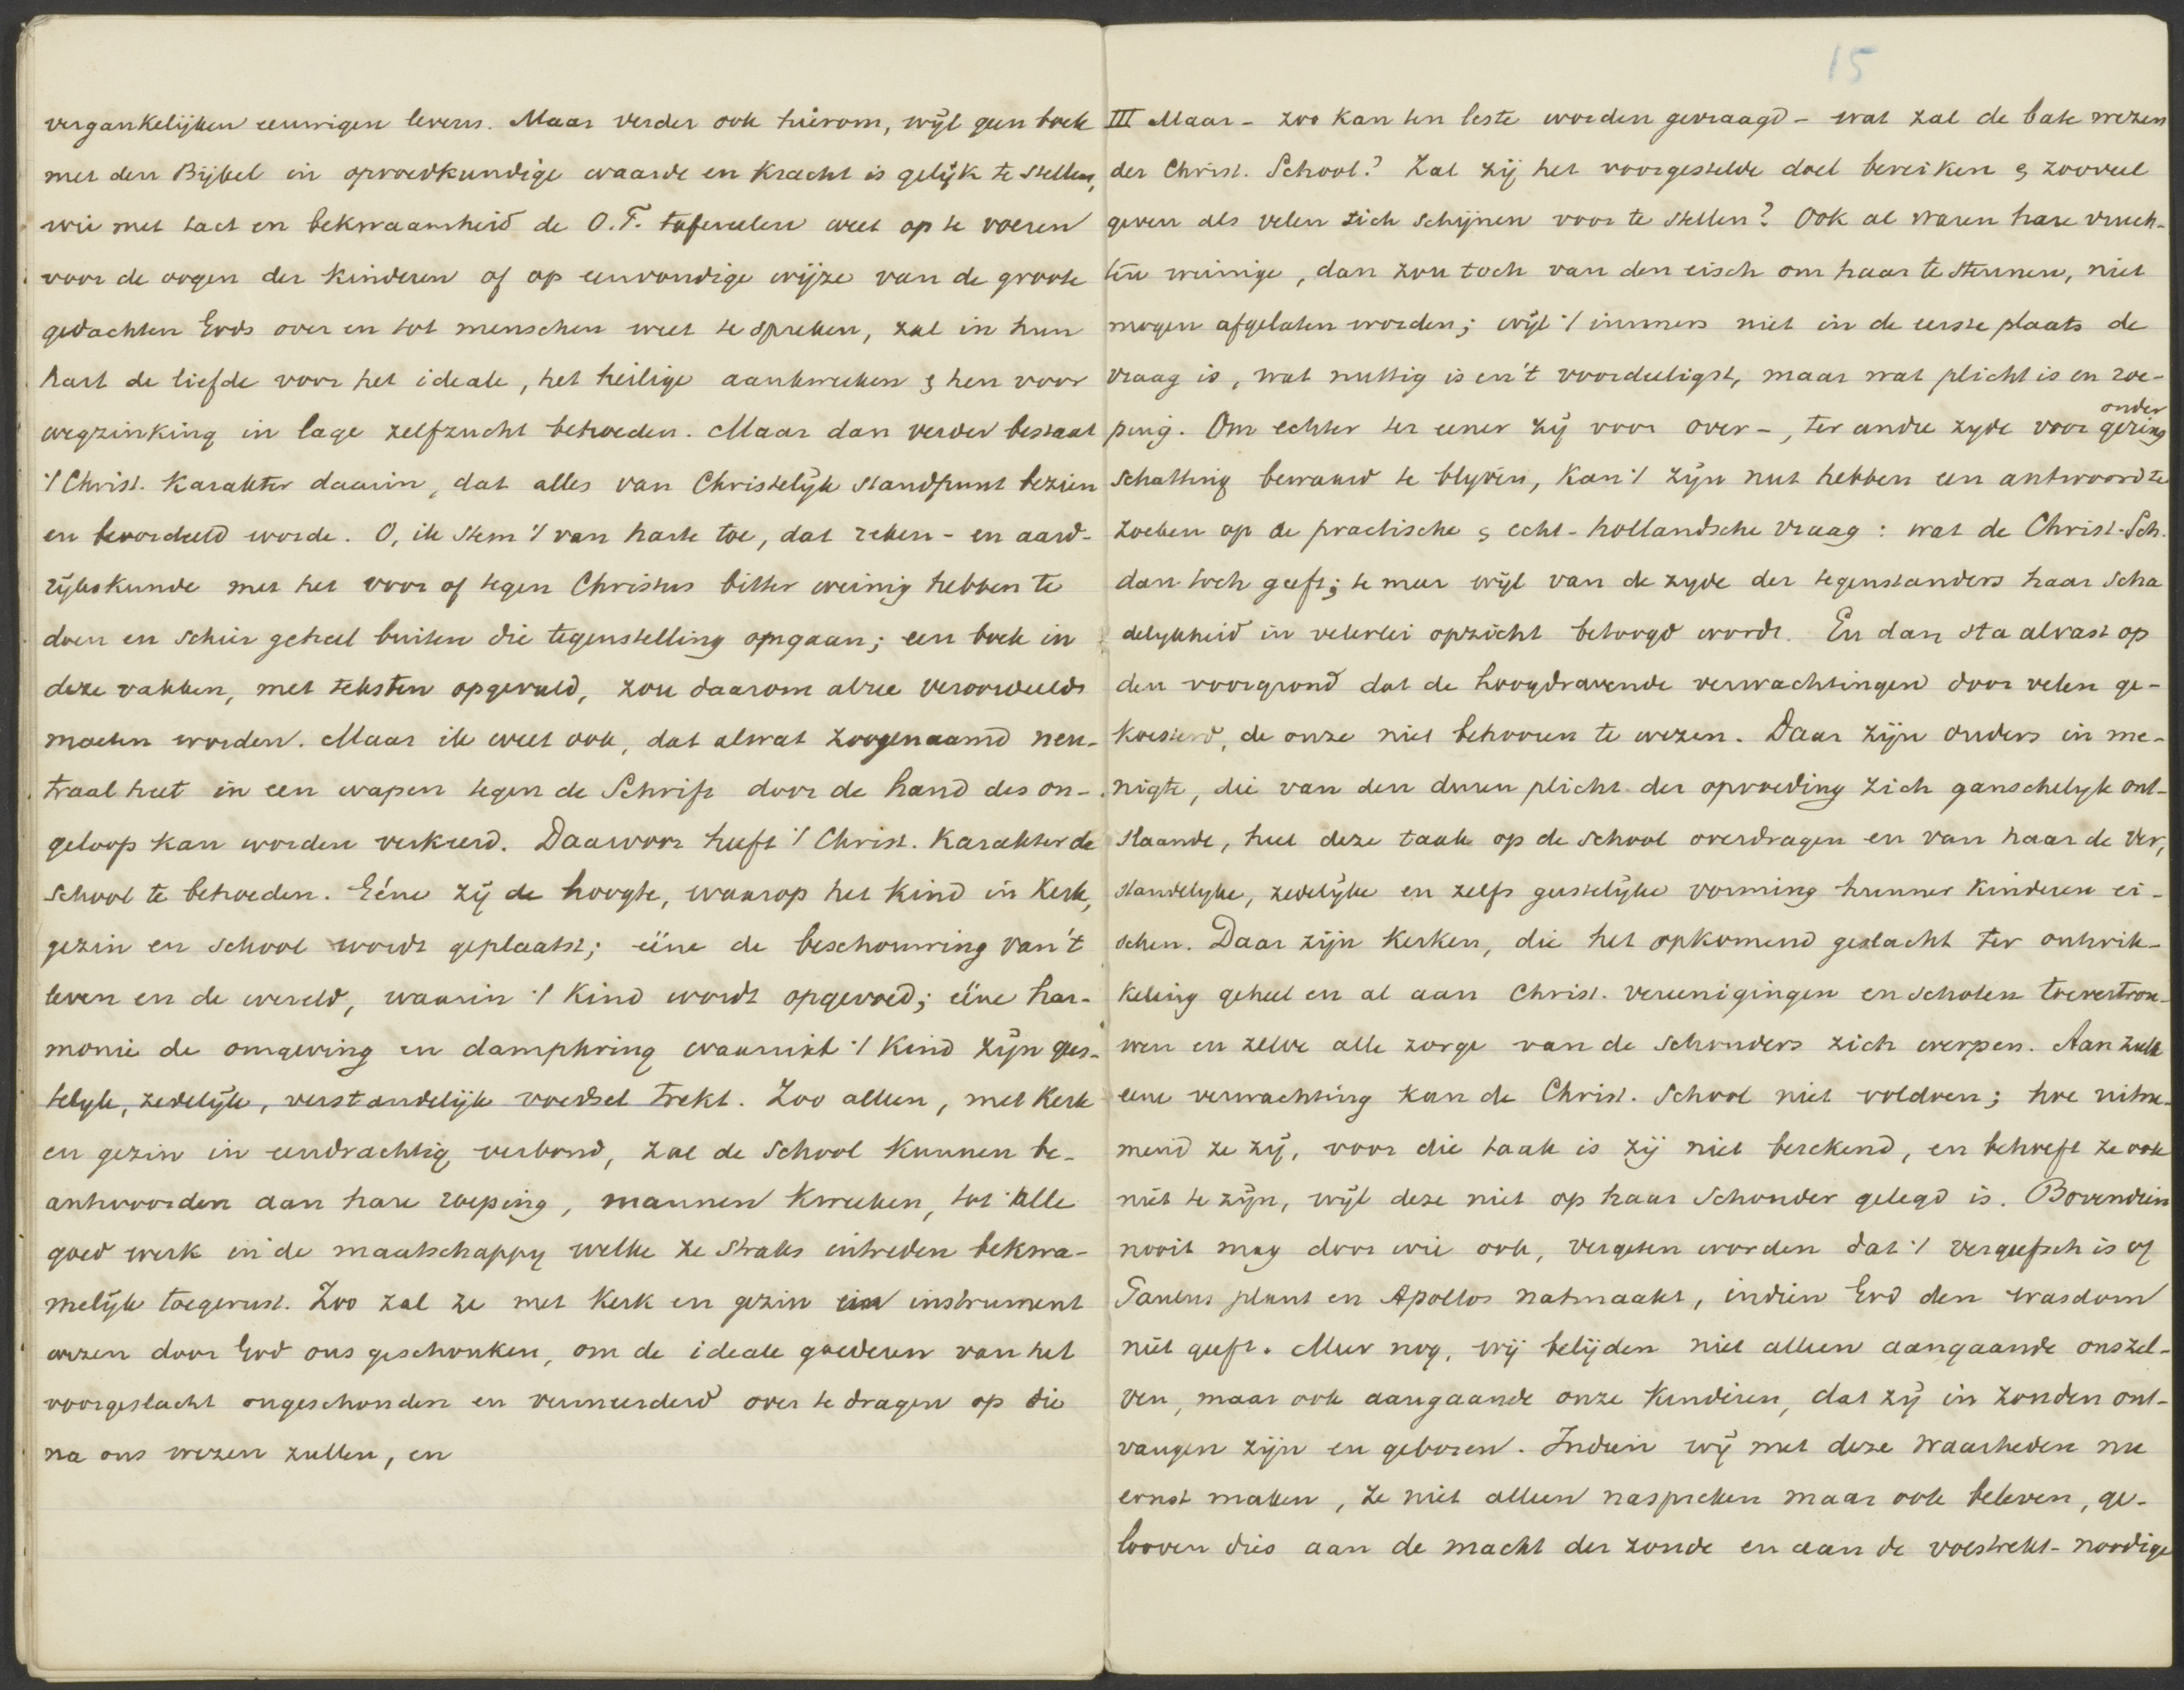 vergankelijken eeuwigen levens. Maar verder ook hierom, wijl geen boek
met den Bijbel in opvoedkundige waarde en kracht is gelijk te stellen,
wie met tact en bekwaamheid de O.T. tafereelen weet op te voeren
voor de oogen der kinderen of op eenvoudige wijze van de groote
gedachten Gods over en tot menschen weet te spreken, zal in hun
hart de liefde voor het ideale, het heilige aankweeken & hen voor
wegzinking in lage zelfzucht behoeden. Maar dan verder bestaat
't Christ. karakter daarin, dat alles van Christelijk standpunt bezien
en beoordeeld worde. O, ik stem 't van harte toe, dat reken- en aard-
rijkskunde met het voor of tegen Christus bitter weinig hebben te
doen en schier geheel buiten die tegenstelling omgaan; een boek in
deze vakken, met teksten opgevuld, zou daarom alree veroordeeld
moeten worden. Maar ik weet ook, dat alwat zoogenaamd neu-
traal heet in een wapen tegen de Schrift door de hand des on-
geloofs kan worden verkeerd. Daarvoor heeft 't Christ. karakter de
school te behoeden. Eéne zij de hoogte, waarop het kind in kerk,
gezin en school wordt geplaatst; ééne de beschouwing van 't
leven en de wereld, waarin 't kind wordt opgevoed; ééne har-
monie de omgeving en dampkring waaruit 't kind zijn gees-
telijk, zedelijk, verstandelijk voedsel trekt. Zoo alleen, met kerk
en gezin in eendrachtig verbond, zal de school kunnen be-
antwoorden aan hare roeping, mannen kweeken, tot alle
goed werk in de maatschappy welke ze straks intreden bekwa-
melijk toegerust. Zoo zal ze met kerk en gezin één instrument
wezen door God ons geschonken, om de ideale goederen van het
voorgeslacht ongeschonden en vermeerderd over te dragen op die
na ons wezen zullen, en
15
III Maar - zoo kan ten leste worden gevraagd - wat zal de bate wezen
der Christ. School? Zal zij het voorgestelde doel bereiken & zooveel
geven als velen zich schijnen voor te stellen? Ook al waren hare vruch-
ten weinige, dan zou toch van den eisch om haar te steunen, niet
mogen afgelaten worden; wijl 't immers niet in de eerste plaats de
vraag is, wat nuttig is en 't voordeeligst, maar wat plicht is en roe-
ping. Om echter ter eener zij voor over-, ter andre zyde voor gering
onder
schatting bewaard te blyven, kan 't zijn nut hebben een antwoord te
zoeken op de practische & echt-hollandsche vraag: wat de Christ. Sch.
dan toch geeft; te meer wijl van de zyde der tegenstanders haar scha
delykheid in velerlei opzicht betoogd wordt. En dan sta alvast op
den voorgrond dat de hoogdravende verwachtingen door velen ge-
koesterd, de onze niet behooren te wezen. Daar zijn ouders in me-
nigte, die van den duren plicht der opvoeding zich ganschelyk ont-
slaande, heel deze taak op de school overdragen en van haar de ver,
standelyke, zedelijke en zelfs geestelijke vorming hunner kinderen ei-
schen. Daar zijn kerken, die het opkomend geslacht ter ontwik-
keling geheel en al aan Christ. vereenigingen en scholen toevertrou-
wen en zelve alle zorge van de schouders zich werpen. Aan zulk
eene verwachting kan de Christ. School niet voldoen; hoe uitne-
mend ze zij, voor die taak is zij niet berekend, en behoeft ze ook
niet te zijn, wijl deze niet op haar schouder gelegd is. Bovendien
nooit mag door wie ook, vergeten worden dat 't vergeefsch is of
Paulus plant en Apollos natmaakt, indien God den wasdom
niet geeft. Meer nog, wij belijden niet alleen aangaande onszel-
ven, maar ook aangaande onze kinderen, dat zij in zonden ont-
vangen zijn en geboren. Indien wij met deze waarheden nu
ernst maken, ze niet alleen naspreken maar ook beleven, ge-
looven dies aan de macht der zonde en aan de volstrekt-noodige